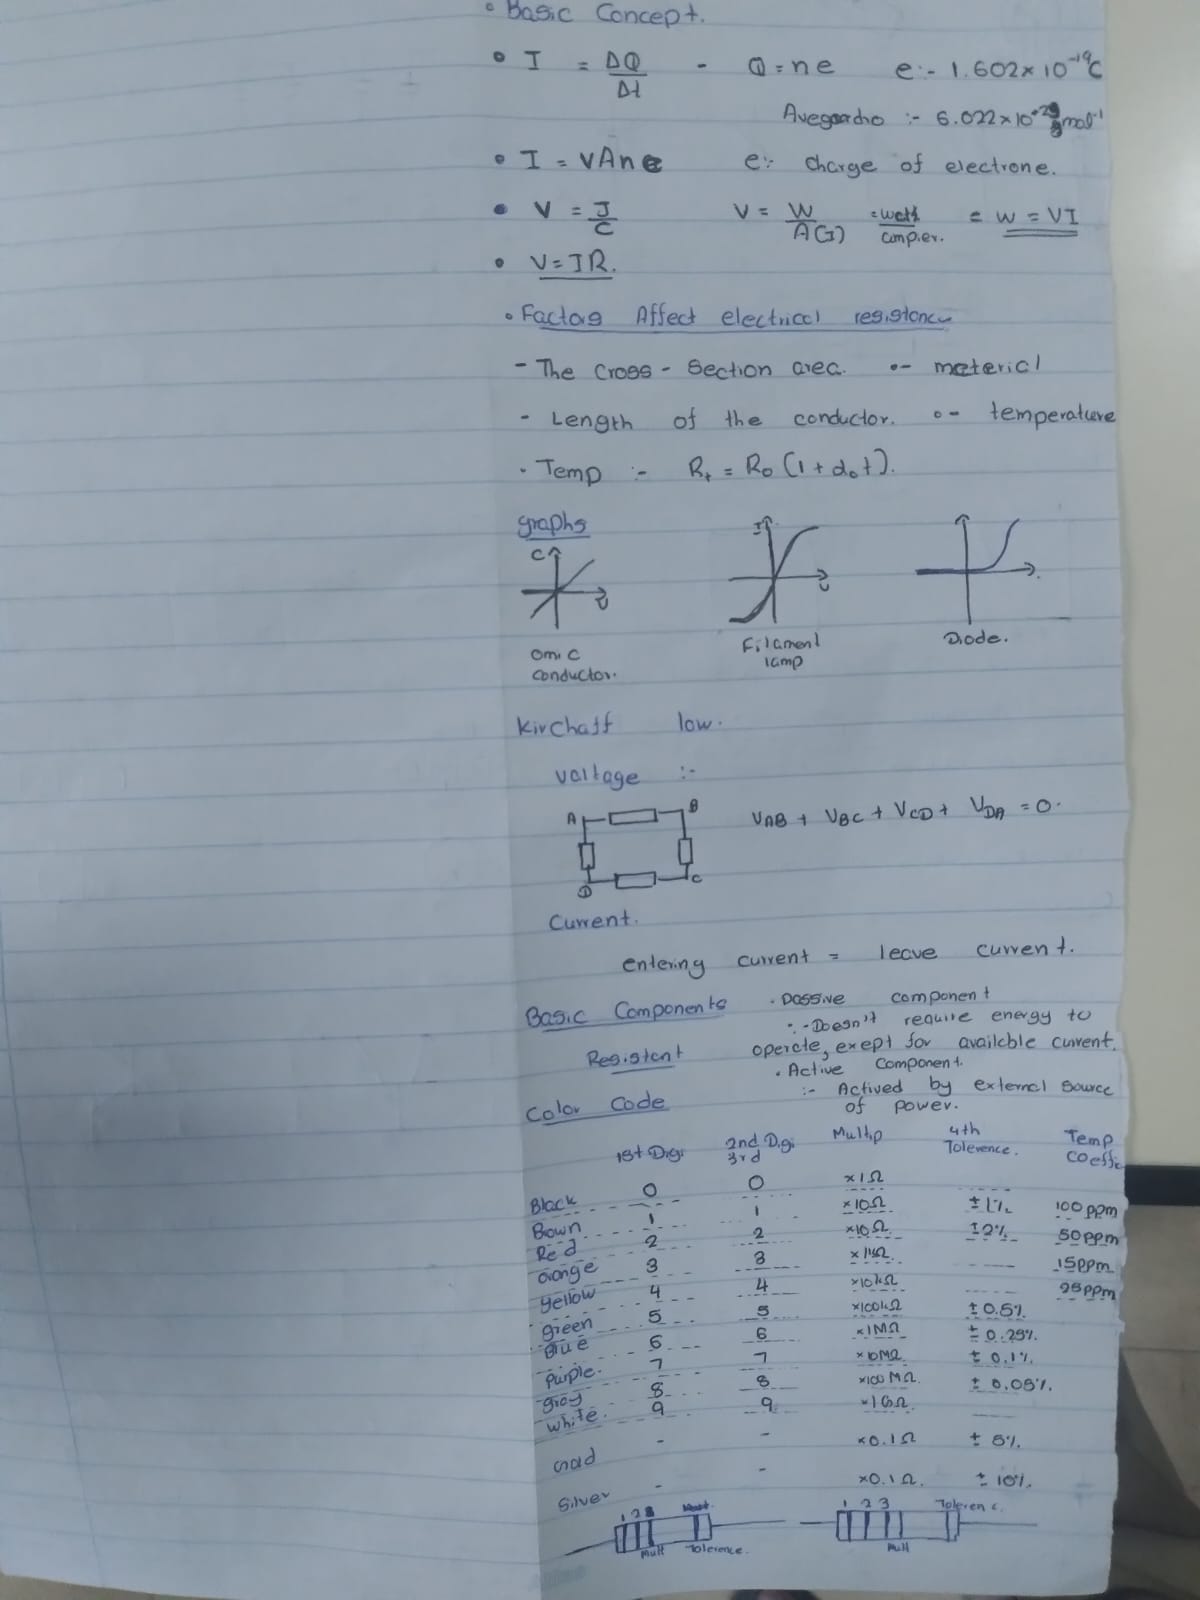 • Basic Concept.
• I = ΔQ/Δt - Q = ne e:- 1.602×10⁻¹⁹C
:- 6.022×10²³ mol⁻¹
• I = vAne e:- charge of electrone.
• V = J/C V = W/A(I) = watt/ampier. = W = VI
• V = IR.
• Factors Affect electrical resistance
- The cross-section area. •- material
- Length of the conductor. •- temperature
• Temp :- Rt = R0 (1 + α0t).
graphs
C V I V
omic conductor. Filament lamp Diode.
Kirchaff low.
Voltage :-
A B C D VAB + VBC + VCD + VDA = 0.
Current.
entering current = leave current.
Basic Components • passive component
:- Doesn't require energy to
Resistant operate, exept for available current.
• Active component.
:- Actived by external source
Color Code of power.
1st Digi 2nd Digi 3rd Multip 4th Tolerence. Temp Coeffi
Black 0 0 ×1Ω
Brown 1 1 ×10Ω ±1% 100ppm
Red 2 2 ×10Ω ±2% 50ppm
Orange 3 3 ×1kΩ 15ppm
Yellow 4 4 ×10kΩ 25ppm
green 5 5 ×100kΩ ±0.5%
Blue 6 6 ×1MΩ ±0.25%
Purple. 7 7 ×10MΩ ±0.1%
gray 8 8 ×100MΩ ±0.05%
white. 9 9 ×1GΩ
Gold - - ×0.1Ω ±5%
Silver - - ×0.1Ω. ±10%
1 2 Mult Tolerence.
1 2 3 Mult Toleren c.